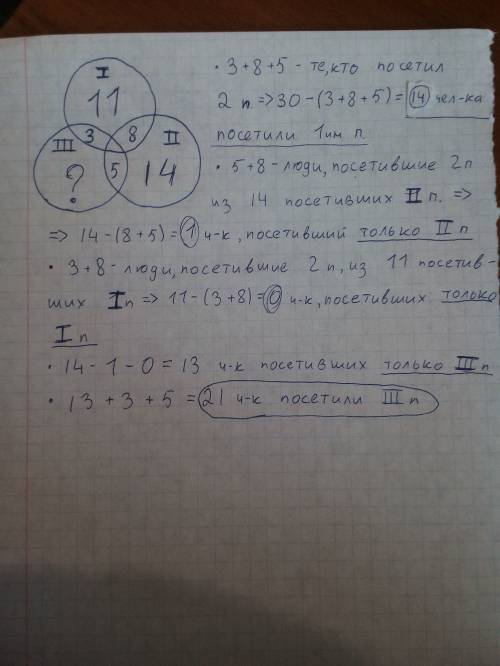 I
11
III
3
8
II
?
5
14
• 3+8+5 - те, кто посетил
2 п. => 30 - (3+8+5) = 14 чел-ка
посетили 1им п.
• 5+8 - люди, посетившие 2п
из 14 посетивших II п. =>
=> 14 - (8+5) = 1 ч-к, посетивший только II п
• 3+8 - люди, посетившие 2 п, из 11 посетив-
ших I п => 11 - (3+8) = 0 ч-к, посетивших только
I п
• 14 - 1 - 0 = 13 ч-к посетивших только III п
• 13 + 3 + 5 = 21 ч-к посетили III п